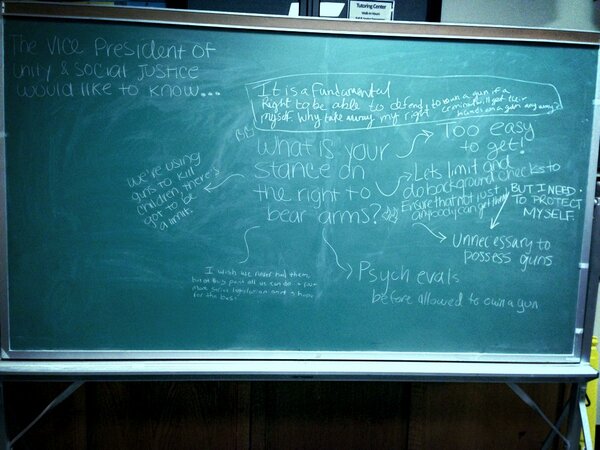 Tutoring Center
The Vice President of
Unity & Social Justice
would like to know...
It is a Fundamental
Right to be able to defend
myself. Why take away my right
to own a gun if a
criminal will get their
hands on a gun anyway?
What is your
stance on
the right to
bear arms?
Too easy
to get!
Lets limit and
do background checks to
Ensure that not just
anybody can get them
BUT I NEED
TO PROTECT
MYSELF.
Unnecessary to
possess guns
Psych evals
before allowed to own a gun
I wish we never had them,
for the best
We're using
guns to kill
children, there's
got to be
a limit.